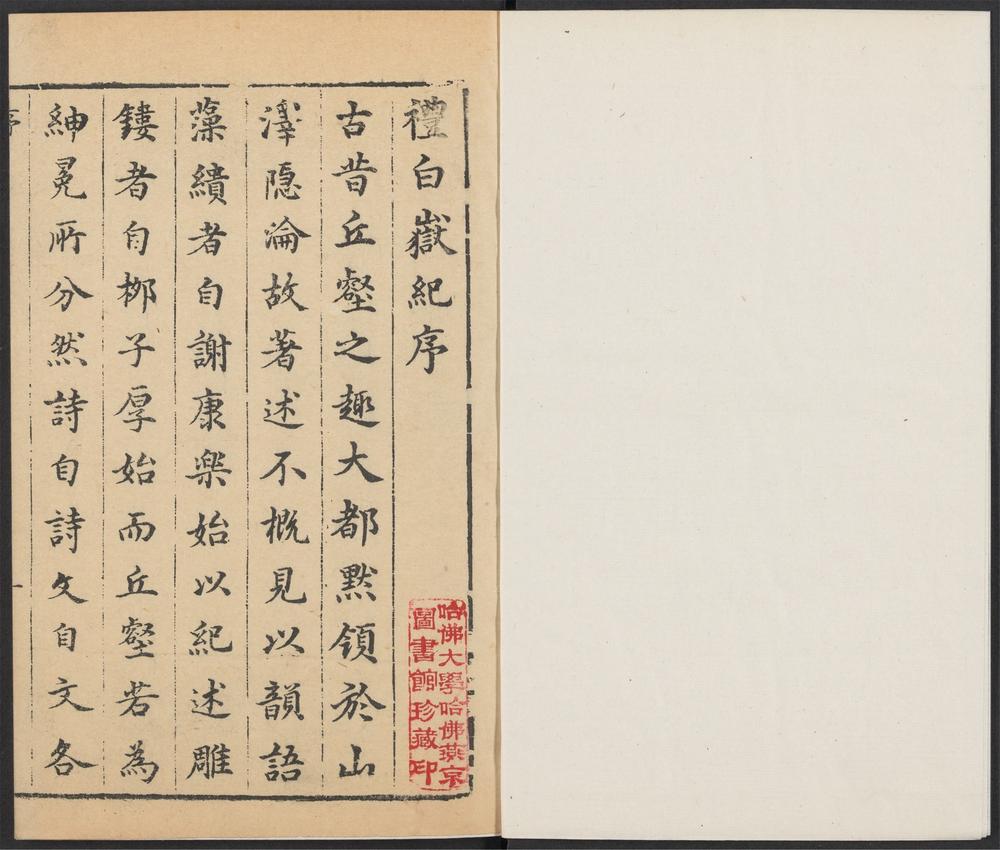 禮白嶽紀序
古昔丘壑之趣大都黙領於山
澤隠淪故著述不概見以韻語
藻繢者自謝康樂始以紀述雕
鏤者自栁子厚始而丘壑若為
紳冕所分然詩自詩文自文各
序
一
哈佛大學哈佛燕京
圖書館珍藏印